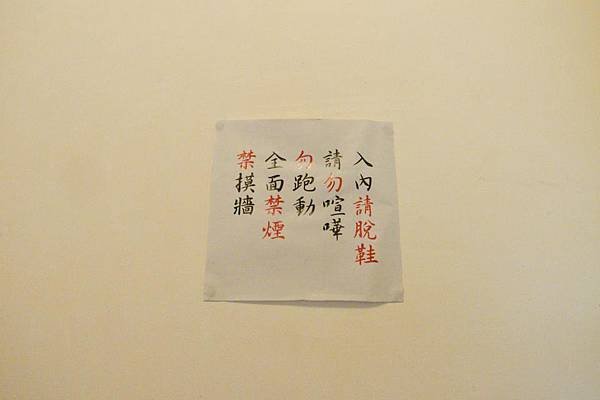 入內請脫鞋
請勿喧嘩
勿跑動
全面禁煙
禁摸牆